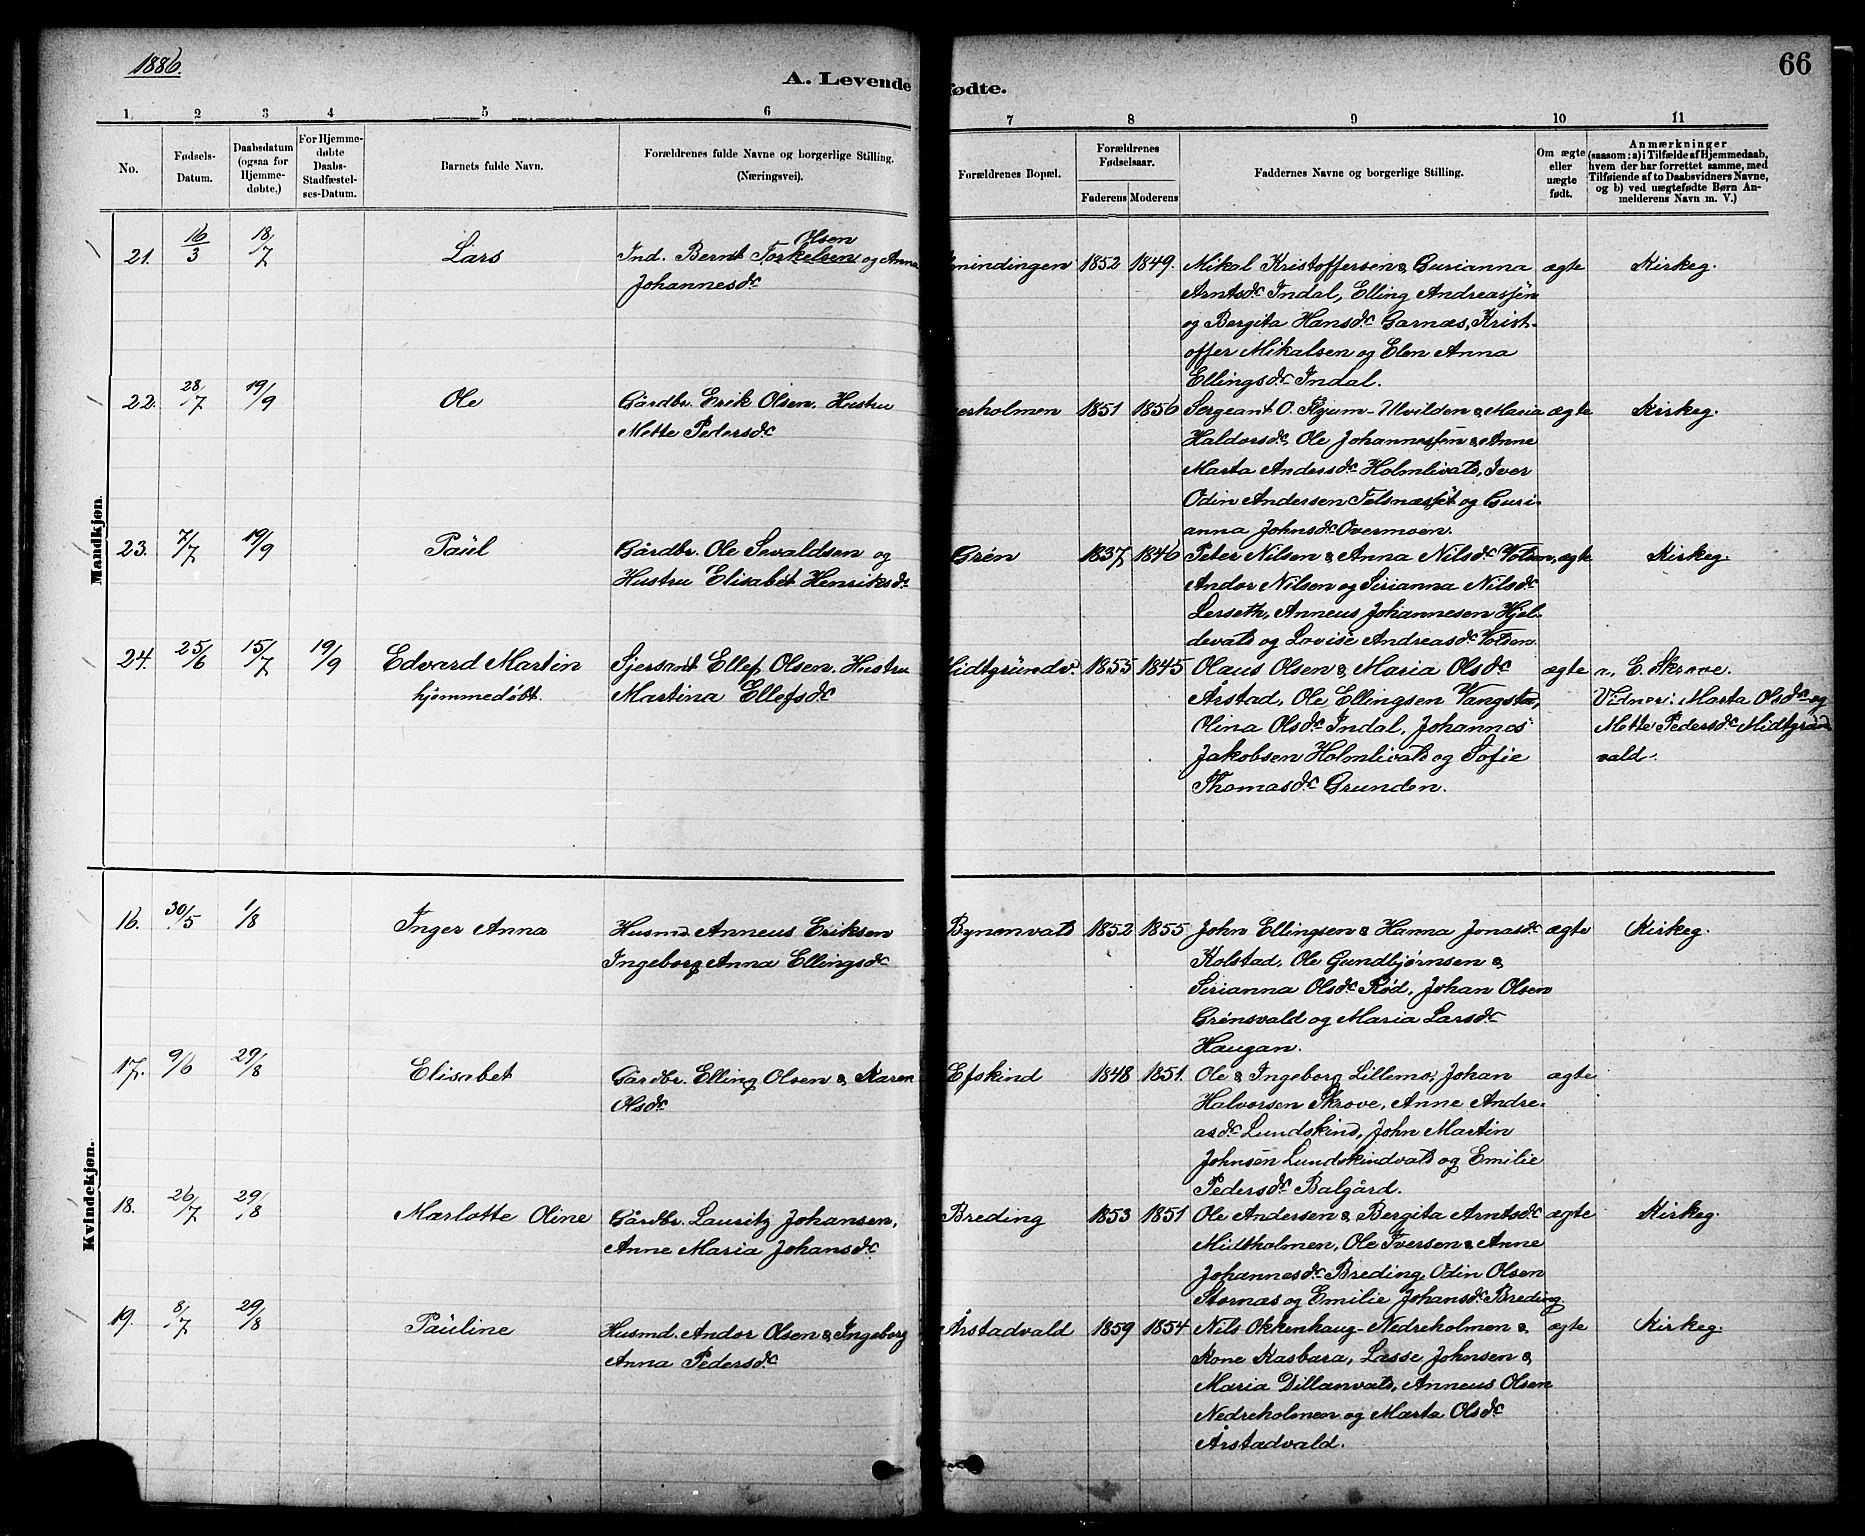 1886.
66
A. Levende Fødte.
1. 2 3 4 5 6 7 8 9 10 11
No.
Fødsels-
Datum.
Daabsdatum
(ogsaa for
Hjemme-
døbte.)
For Hjemme-
døbte
Daabs-
Stadfæstel-
ses-Datum.
Barnets fulde Navn.
Forældrenes fulde Navne og borgerlige Stilling,
(Næringsvei).
Forældrenes Bopæl.
Forældrenes
Fødselsaar.
Faderens Moderens
Faddernes Navne og borgerlige Stilling.
Om ægte
eller
uægte
født.
Anmærkninger
(saasom: a) i Tilfælde af Hjemmedaab,
hvem der har forrettet samme, med
Tilføiende af to Daabsvidners Navne,
og b) ved uægtefødte Børn An-
melderens Navn m. V.)
Mandkjøn.
21. 16/3 18/7 Lars
Olsen
Ind. Bernt Torkelsen og Anna
Johannesdr
mindingen 1852 1849.
Mikal Kristoffersen & Gurianna
Arntsdr Indal, Elling Andreassen
og Bergita Hansdr Garnæs, Krist-
offer Mikalsen og Elen Anna
Ellingsdr Indal.
ægte Kirkeg.
22. 28/7 19/9 Ole
Gårdbr. Erik Olsen, Hustru
Mette Pedersdr
erholmen 1851 1856
Sergeant O. Kjum-Ulvilden & Maria
Haldorsdr, Ole Johannessen & Anne
Marta Andersdr Holmlivald, Iver
Odin Andersen Telsnæsset og Guri-
anna Johnsdr Overmoen.
ægte Kirkeg.
23. 7/7 19/9 Paul
Gårdbr. Ole Sivaldsen og
Hustru Elisabet Henriksdr
Grén 1837 1846
Peter Nilsen & Anna Nilsdr Volsen,
Andor Nilsen og Sirianna Nilsdr
Lerseth, Anneus Johannesen Hjel-
devald og Lovise Andreasdr Volsen.
ægte Kirkeg.
24. 25/6 15/7 19/9 Edvard Martin
hjemmedøbt.
Sjersant Ellef Olsen, Hustru
Martina Ellefsdr
Midtgrundv. 1855 1845
Olaus Olsen & Maria Olsdr
Årstad, Ole Ellingsen Vangstad,
Olina Olsdr Indal, Johannes
Jakobsen Holmlivald og Sofie
Thomasdr Grunden.
ægte
a, E. Skrove.
Vidner: Marta Olsdr og
Mette Pedersdr Midtgrund
vald.
Kvindekjøn.
16. 30/5 1/8 Inger Anna
Husmd. Anneus Eriksen
Ingeborg Anna Ellingsdr
Bynenvald 1852 1855
John Ellingsen & Hanna Jonasdr
Kolstad, Ole Gundbjørnsen &
Sirianna Olsdr Rød, Johan Olsen
Grénsvald og Maria Larsdr
Haugan.
ægte Kirkeg.
17. 9/6 29/8 Elisabet
Gårdbr. Elling Olsen & Karen
Olsdr
Efskind 1848 1851.
Ole & Ingeborg Lillemo, Johan
Halvorsen Skrove, Anne Andre-
asdr Lundskind, John Martin
Johnsen Lundskindvald og Emilie
Pedersdr Balgård.
ægte
18. 26/7 29/8 Marlotte Oline
Gårdbr. Lauritz Johansen,
Anne Maria Johansdr
Breding 1853 1851
Ole Andersen & Bergita Arntsdr
Midtholmen, Ole Iversen & Anne
Johannesdr Breding, Odin Olsen
Stornæs og Emilie Johansdr Breding
ægte Kirkeg.
19. 8/7 29/8 Pauline
Husmd. Andor Olsen & Ingeborg
Anna Pedersdr
Årstadvald 1859 1854
Nils Okkenhaug-Nedreholmen &
Kone Kasbara, Lasse Johnsen &
Maria Dillanvald, Anneus Olsen
Nedreholmen og Marta Olsdr
Årstadvald.
ægte Kirkeg.